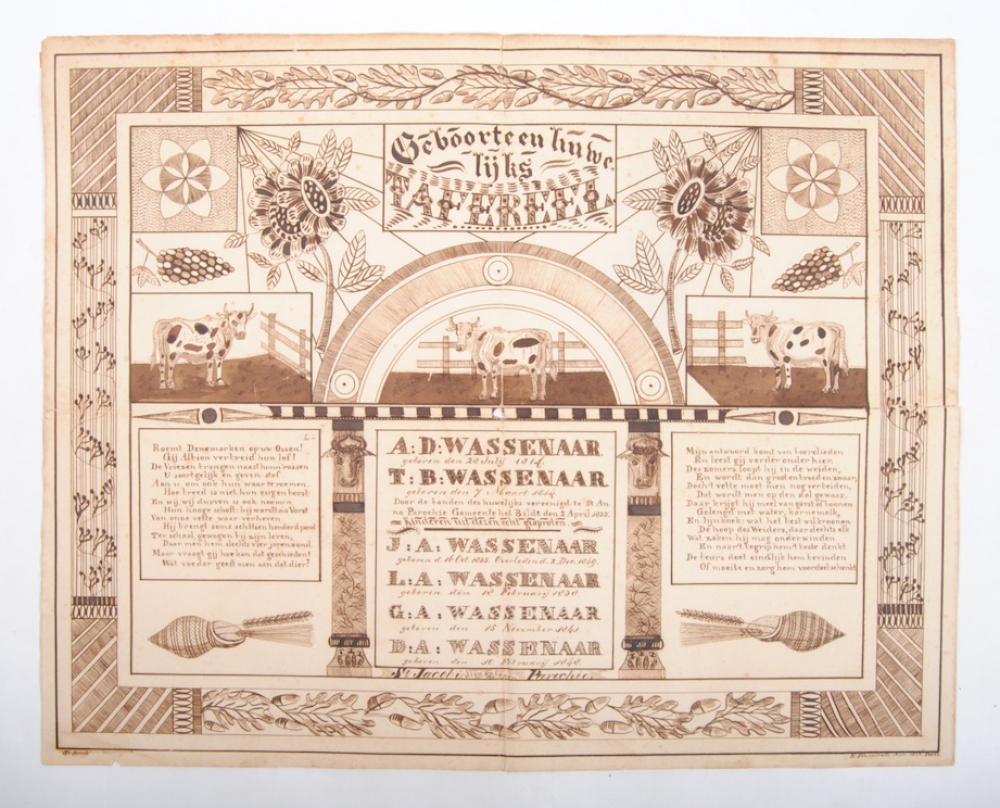 Geboorte en huwe
lijks
TAFEREEL
Roemt Denemarken op uw Ossen!
Gij Albion verbreid hun lof!
De Vriezen brengen naast hunn'rossen
U soortgelijk en geven stof
Aan u, om ook hun waar te roemen.
Hoe breed u niet hun eugen borst
En wij, wij durven u ook noemen
Hun hooge schoft: hij wordt als Vorst
Van onze vette waar verheven,
Hij brengt soms achttien honderd pond
Ter schaal, gewogen bij zijn leven,
Daar men hem slechts vier jaren vond.
Maar vraagt gij hoe kan dat geschieden?
Wat voeder geeft men aan dat dier?
A:D:WASSENAAR
geboren den 28 July 1814.
T:B:WASSENAAR
geboren den 7 Maart 1814.
Door de banden des huwelijks vereenigd te St An
na Parochie Gemeente het Bildt den 2 April 1835.
Kinderen uit dezen echt gesproten.
J:A:WASSENAAR
geboren d. 16 Oct. 1835. Overleden d. 2 Dec. 1859.
L:A:WASSENAAR
geboren den 18 February 1838.
G:A:WASSENAAR
geboren den 15 November 1841.
D:A:WASSENAAR
geboren den 16 February 1848.
St Jacobi Parochie
Mijn antwoord komt van boerelieden
En leest gij verder onder hier.
Des zomers loopt hij in de weiden,
En wordt dan groot en breed en zwaar,
Doch't vette moet men nog verbeiden,
Dat wordt men op den stal gewaar.
Daar krijgt hij meel van garst of boonen
Gelengd met water, karnemelk,
En lijnkoek: wat het best wil kroonen
De hoop des Weiders, daar slechts elk
Wat zaken hij mag onderwinden
En naar't begrip hem't beste denkt
De beurs doet eindlijk hem bevinden
Of moeite en zorg hem voordeel schenkt